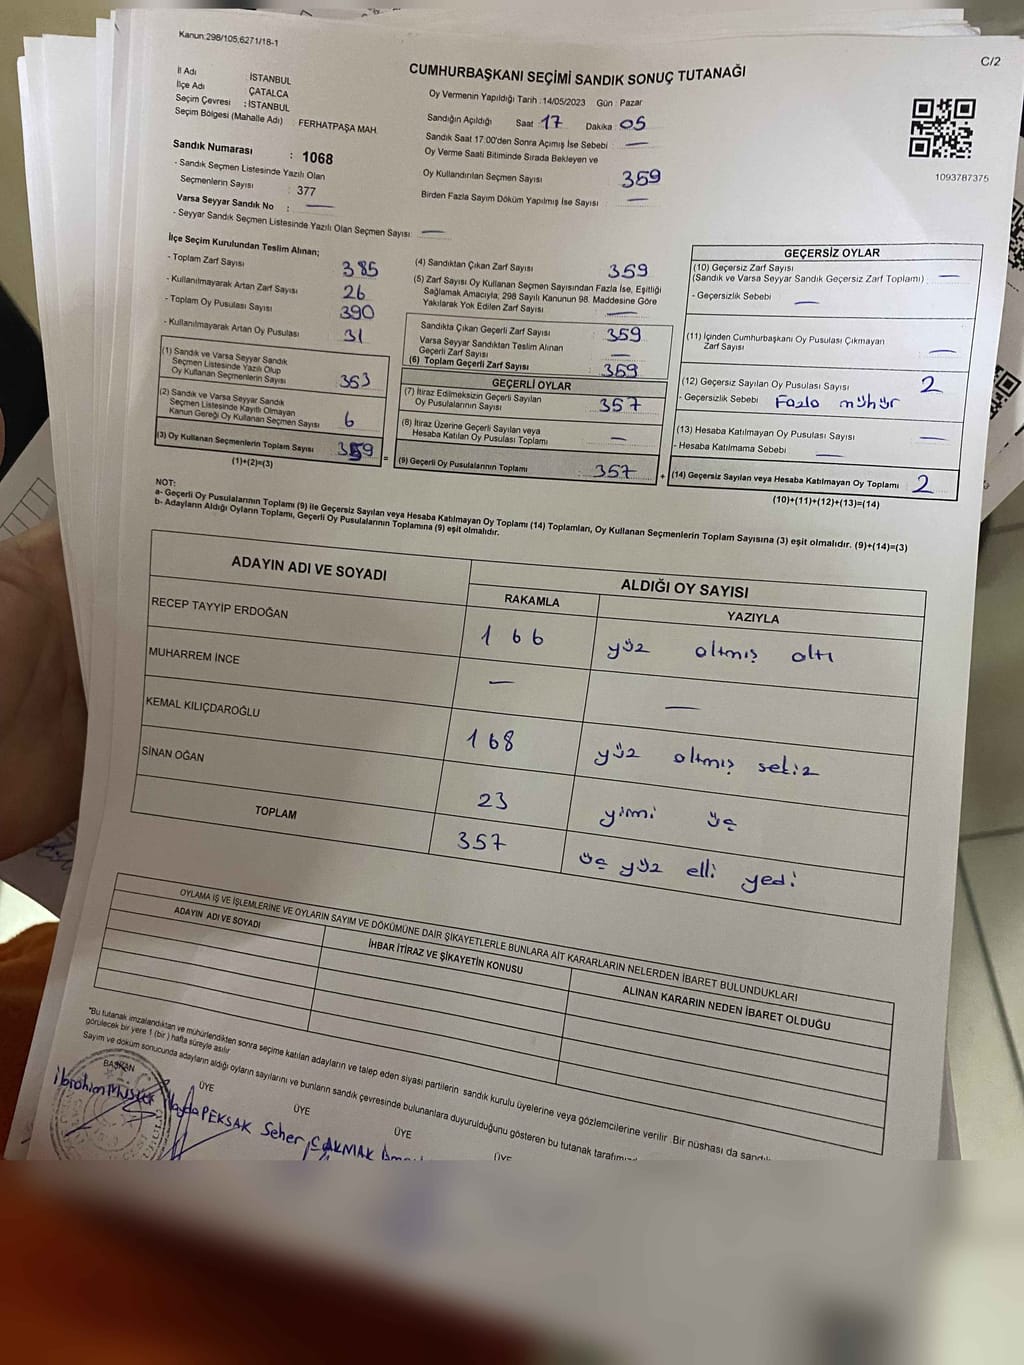 Kanun:298/105,6271/18-1
C/2
CUMHURBAŞKANI SEÇİMİ SANDIK SONUÇ TUTANAĞI
İl Adı : İSTANBUL
İlçe Adı : ÇATALCA
Seçim Çevresi : İSTANBUL
Seçim Bölgesi (Mahalle Adı) : FERHATPAŞA MAH.
Sandık Numarası : 1068
- Sandık Seçmen Listesinde Yazılı Olan
Seçmenlerin Sayısı : 377
Varsa Seyyar Sandık No : —
- Seyyar Sandık Seçmen Listesinde Yazılı Olan Seçmen Sayısı: —
Oy Vermenin Yapıldığı Tarih :14/05/2023 Gün : Pazar
Sandığın Açıldığı Saat : 17 Dakika : 05
Sandık Saat 17:00'den Sonra Açımış İse Sebebi : —
Oy Verme Saati Bitiminde Sırada Bekleyen ve
Oy Kullandırılan Seçmen Sayısı : 359
Birden Fazla Sayım Döküm Yapılmış İse Sayısı : —
1093787375
İlçe Seçim Kurulundan Teslim Alınan;
- Toplam Zarf Sayısı : 385
- Kullanılmayarak Artan Zarf Sayısı : 26
- Toplam Oy Pusulası Sayısı : 390
- Kullanılmayarak Artan Oy Pusulası : 31
(1) Sandık ve Varsa Seyyar Sandık
Seçmen Listesinde Yazılı Olup
Oy Kullanan Seçmenlerin Sayısı : 353
(2) Sandık ve Varsa Seyyar Sandık
Seçmen Listesinde Kayıtlı Olmayan
Kanun Gereği Oy Kullanan Seçmen Sayısı : 6
(3) Oy Kullanan Seçmenlerin Toplam Sayısı : 359
(1)+(2)=(3)
(4) Sandıktan Çıkan Zarf Sayısı : 359
(5) Zarf Sayısı Oy Kullanan Seçmen Sayısından Fazla İse, Eşitliği
Sağlamak Amacıyla; 298 Sayılı Kanunun 98. Maddesine Göre
Yakılarak Yok Edilen Zarf Sayısı : —
Sandıkta Çıkan Geçerli Zarf Sayısı : 359
Varsa Seyyar Sandıktan Teslim Alınan
Geçerli Zarf Sayısı : —
(6) Toplam Geçerli Zarf Sayısı : 359
GEÇERLİ OYLAR
(7) İtiraz Edilmeksizin Geçerli Sayılan
Oy Pusulalarının Sayısı : 357
(8) İtiraz Üzerine Geçerli Sayılan veya
Hesaba Katılan Oy Pusulası Toplamı : —
= (9) Geçerli Oy Pusulalarının Toplamı : 357
GEÇERSİZ OYLAR
(10) Geçersiz Zarf Sayısı
(Sandık ve Varsa Seyyar Sandık Geçersiz Zarf Toplamı) : —
- Geçersizlik Sebebi : —
(11) İçinden Cumhurbaşkanı Oy Pusulası Çıkmayan
Zarf Sayısı : —
(12) Geçersiz Sayılan Oy Pusulası Sayısı : 2
- Geçersizlik Sebebi : Fazla mühür
(13) Hesaba Katılmayan Oy Pusulası Sayısı : —
- Hesaba Katılmama Sebebi : —
+ (14) Geçersiz Sayılan veya Hesaba Katılmayan Oy Toplamı : 2
(10)+(11)+(12)+(13)=(14)
NOT:
a- Geçerli Oy Pusulalarının Toplamı (9) ile Geçersiz Sayılan veya Hesaba Katılmayan Oy Toplamı (14) Toplamları, Oy Kullanan Seçmenlerin Toplam Sayısına (3) eşit olmalıdır. (9)+(14)=(3)
b- Adayların Aldığı Oyların Toplamı, Geçerli Oy Pusulalarının Toplamına (9) eşit olmalıdır.
ADAYIN ADI VE SOYADI ALDIĞI OY SAYISI
RAKAMLA YAZIYLA
RECEP TAYYİP ERDOĞAN 166 yüz altmış altı
MUHARREM İNCE — —
KEMAL KILIÇDAROĞLU 168 yüz altmış sekiz
SİNAN OĞAN 23 yirmi üç
TOPLAM 357 üç yüz elli yedi
OYLAMA İŞ VE İŞLEMLERİNE VE OYLARIN SAYIM VE DÖKÜMÜNE DAİR ŞİKAYETLERLE BUNLARA AİT KARARLARIN NELERDEN İBARET BULUNDUKLARI
ADAYIN ADI VE SOYADI İHBAR İTİRAZ VE ŞİKAYETİN KONUSU ALINAN KARARIN NEDEN İBARET OLDUĞU
*Bu tutanak imzalandıktan ve mühürlendikten sonra seçime katılan adayların ve talep eden siyasi partilerin sandık kurulu üyelerine veya gözlemcilerine verilir. Bir nüshası da sandık
görülecek bir yere 1 (bir) hafta süreyle asılır.
Sayım ve döküm sonucunda adayların aldığı oyların sayılarını ve bunların sandık çevresinde bulunanlara duyurulduğunu gösteren bu tutanak tarafımız
BAŞKAN ÜYE ÜYE ÜYE ÜYE
İbrahim PEKSAK Seher ÇAKMAK